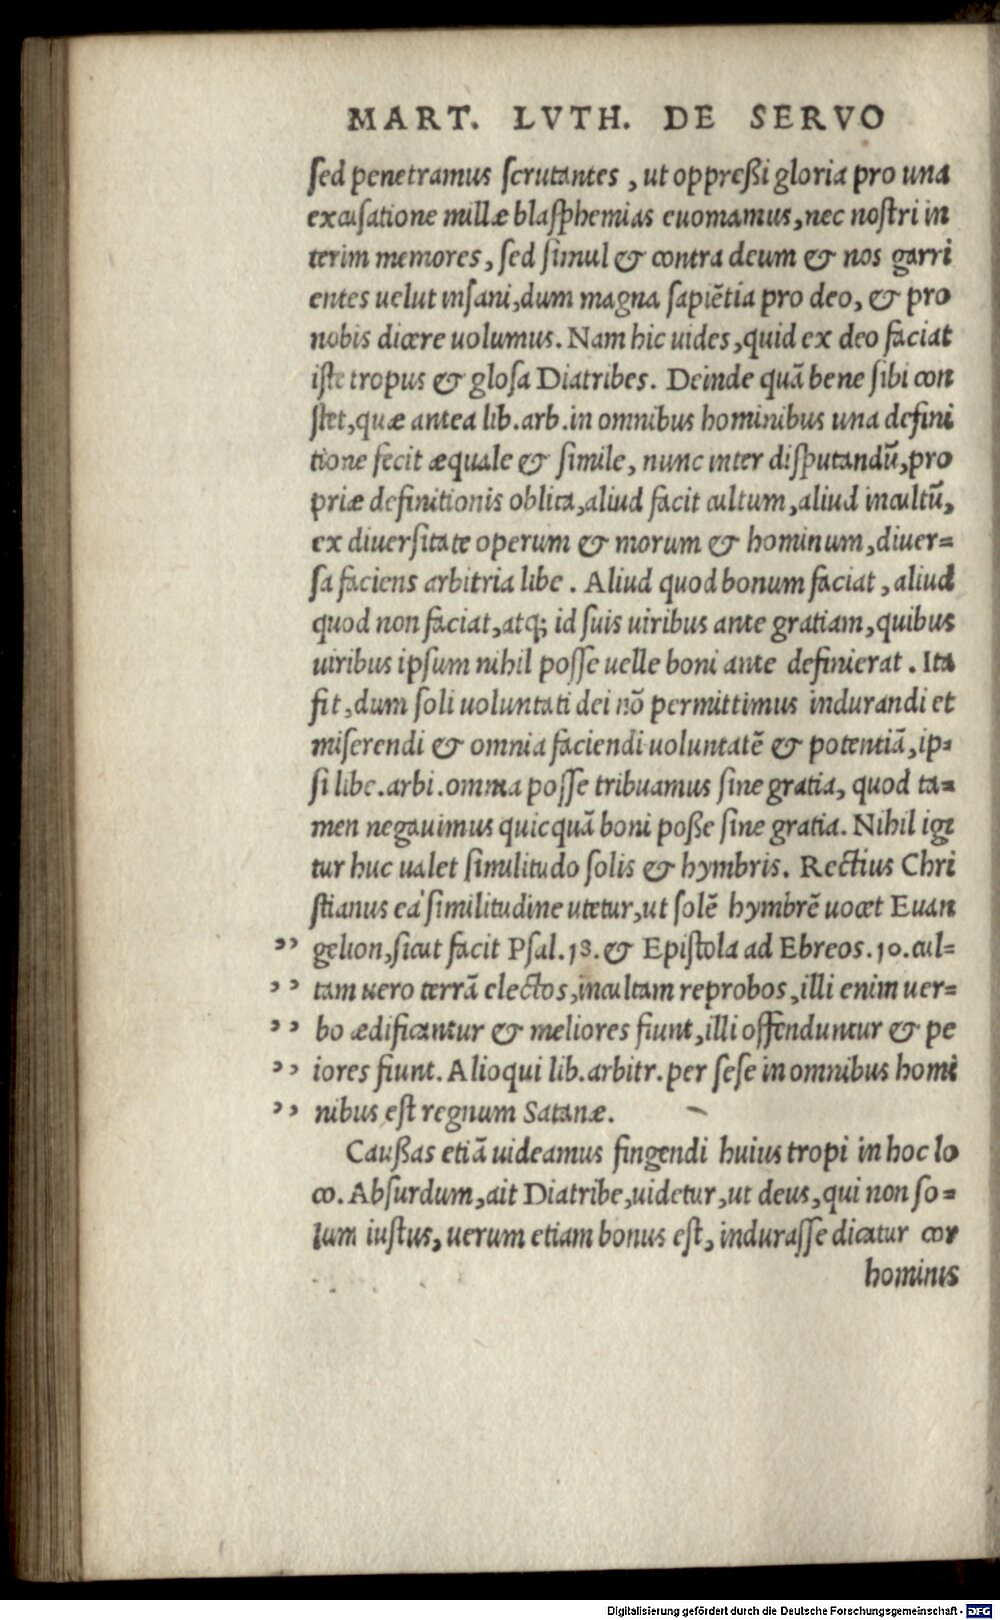 MART. LVTH. DE SERVO
sed penetramus scrutantes, ut oppreßi gloria pro una
excusatione millæ blasphemias euomamus, nec nostri in
terim memores, sed simul & contra deum & nos garri
entes uelut insani, dum magna sapiẽtia pro deo, & pro
nobis dicere uolumus. Nam hic uides, quid ex deo faciat
iste tropus & glosa Diatribes. Deinde quã bene sibi con
stet, quæ antea lib. arb. in omnibus hominibus una defini
tione fecit æquale & simile, nunc inter disputandũ, pro
priæ definitionis oblita, aliud facit cultum, aliud incultũ,
ex diuersitate operum & morum & hominum, diuer=
sa faciens arbitria libe. Aliud quod bonum faciat, aliud
quod non faciat, atq; id suis uiribus ante gratiam, quibus
uiribus ipsum nihil posse uelle boni ante definierat. Ita
fit, dum soli uoluntati dei nõ permittimus indurandi et
miserendi & omnia faciendi uoluntatẽ & potentiã, ip=
si libe. arbi. omnia posse tribuamus sine gratia, quod ta=
men negauimus quicquã boni poße sine gratia. Nihil igi
tur huc ualet similitudo solis & hymbris. Rectius Chri
stianus ea similitudine utetur, ut solẽ hymbrẽ uocet Euan
,, gelion, sicut facit Psal. 18. & Epistola ad Ebreos. 10. cul=
,, tam uero terrã electos, incultam reprobos, illi enim uer=
,, bo ædificantur & meliores fiunt, illi offenduntur & pe
,, iores fiunt. Alioqui lib. arbitr. per sese in omnibus homi
,, nibus est regnum Satanæ.
Caußas etiã uideamus fingendi huius tropi in hoc lo
co. Absurdum, ait Diatribe, uidetur, ut deus, qui non so=
lum iustus, uerum etiam bonus est, indurasse dicatur cor
hominis
Digitalisierung gefördert durch die Deutsche Forschungsgemeinschaft - DFG